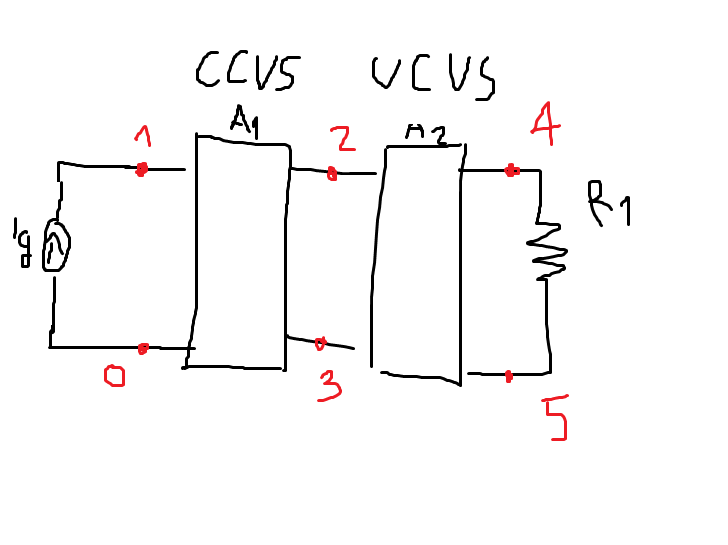 CCVS VCVS
A1 A2
1 2 4
ig R1
0 3 5